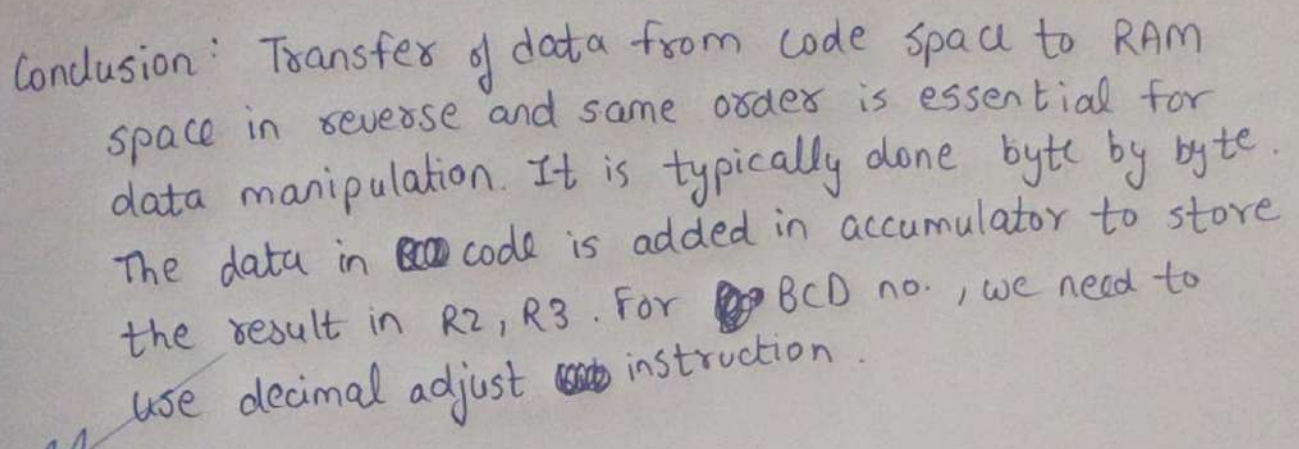 Conclusion: Transfer of data from code space to RAM
space in reverse and same order is essential for
data manipulation. It is typically done byte by byte.
The data in code is added in accumulator to store
the result in R2, R3. For BCD no., we need to
use decimal adjust instruction.